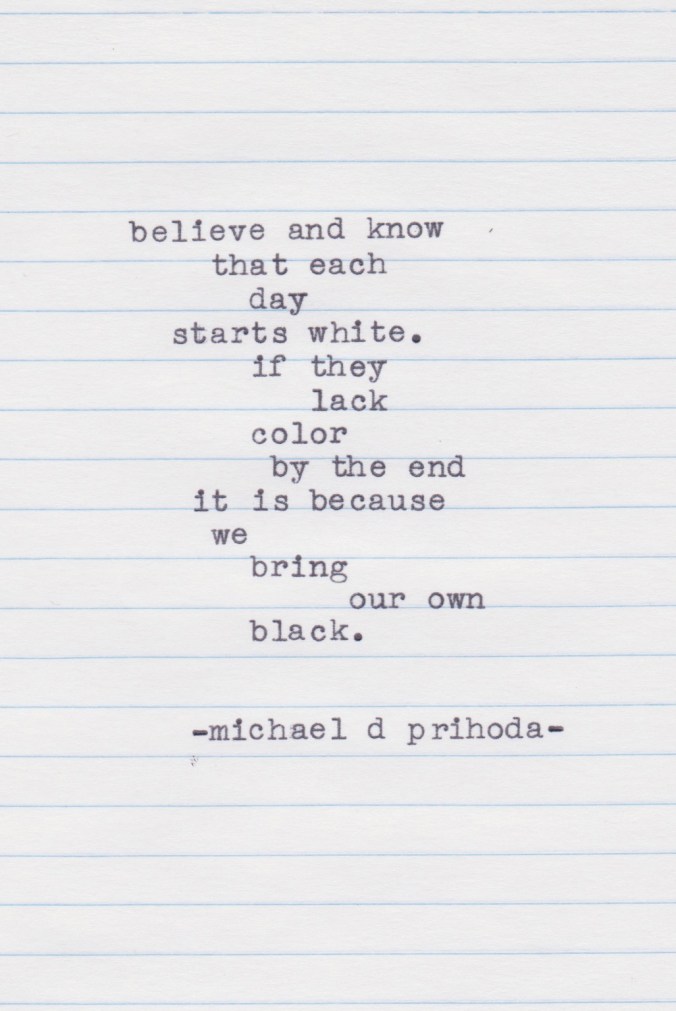 believe and know
that each
day
starts white.
if they
lack
color
by the end
it is because
we
bring
our own
black.
-michael d prihoda-